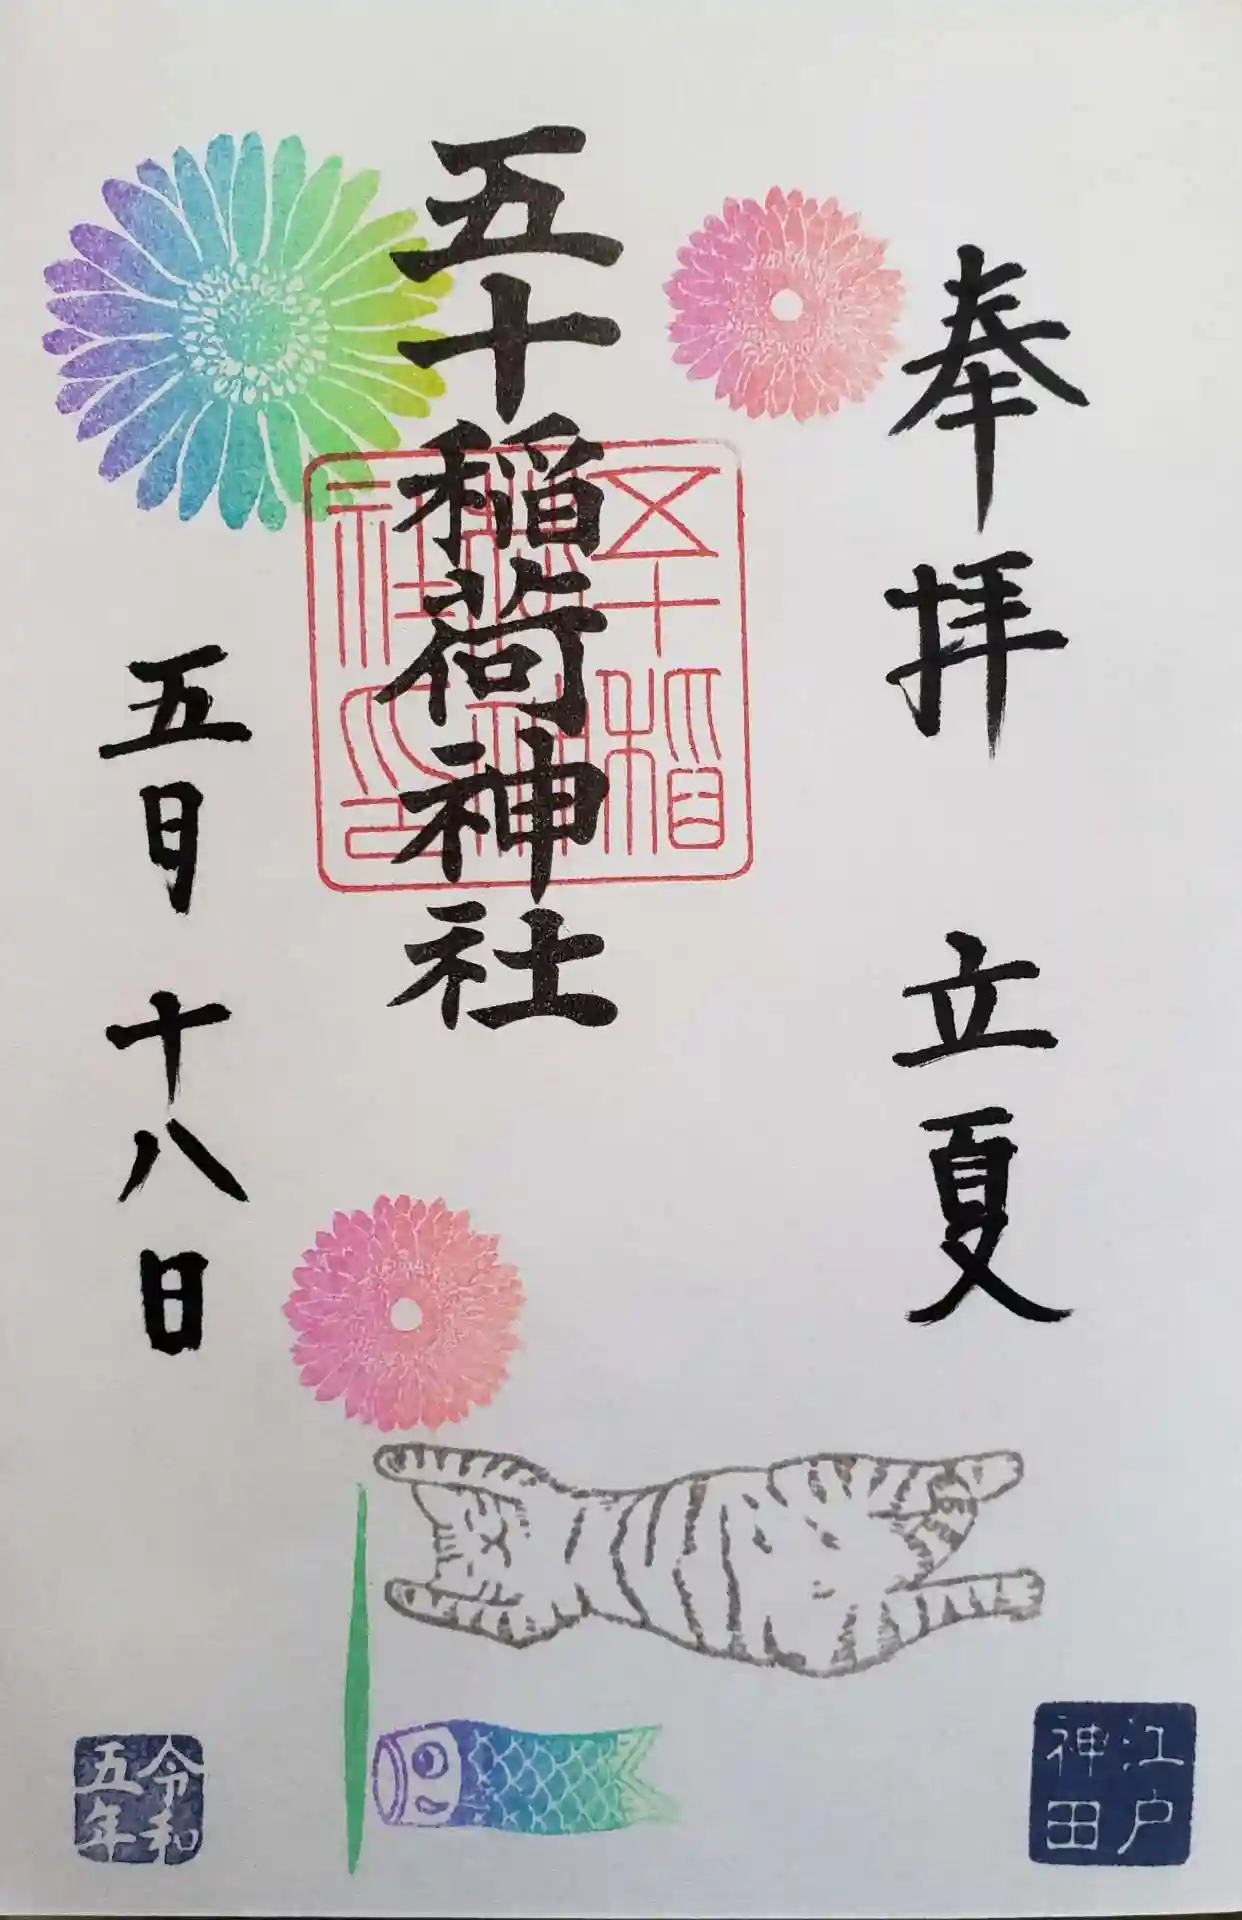 奉拝 立夏
五十稲荷神社
五十稲荷神社印
五月十八日
江戸神田
令和五年